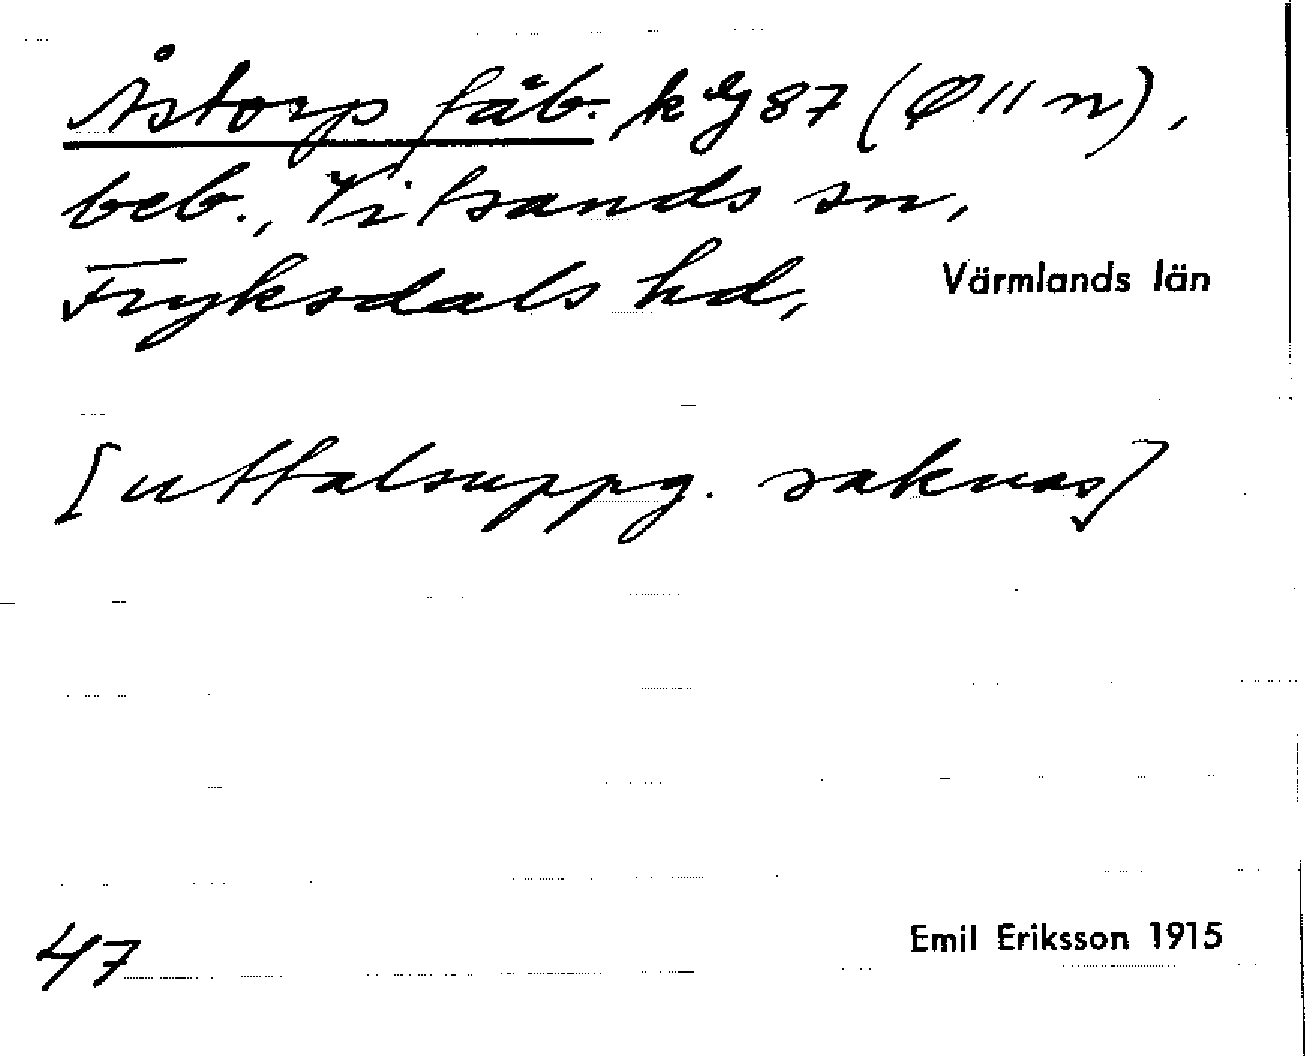 Åstorp fäb. keg 87 (Ø 11 n),
beb., Vitsands sn,
Fryksdals hd, Värmlands län
[uttalsuppg. saknas]
47 Emil Eriksson 1915